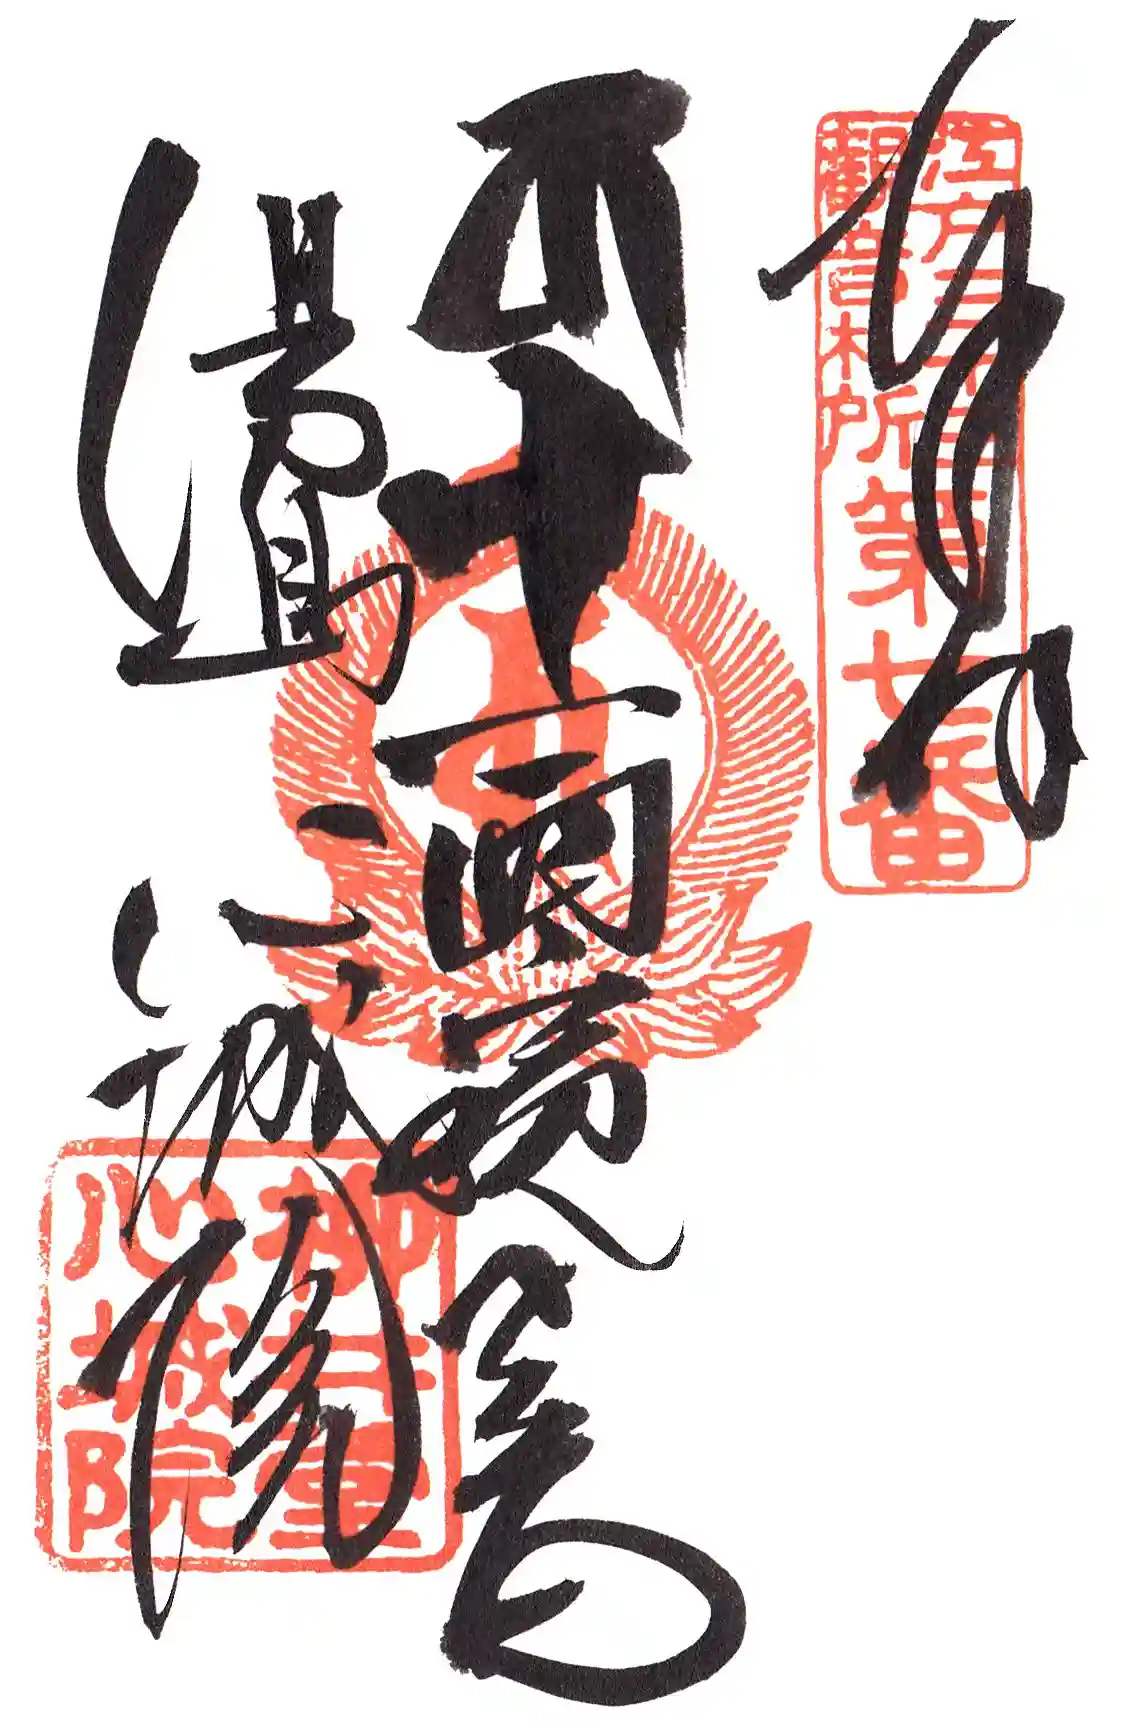 奉拝
江戸三十三
観音札所
第七番
十一面観世音
湯島
心城院
柳井堂
心城院